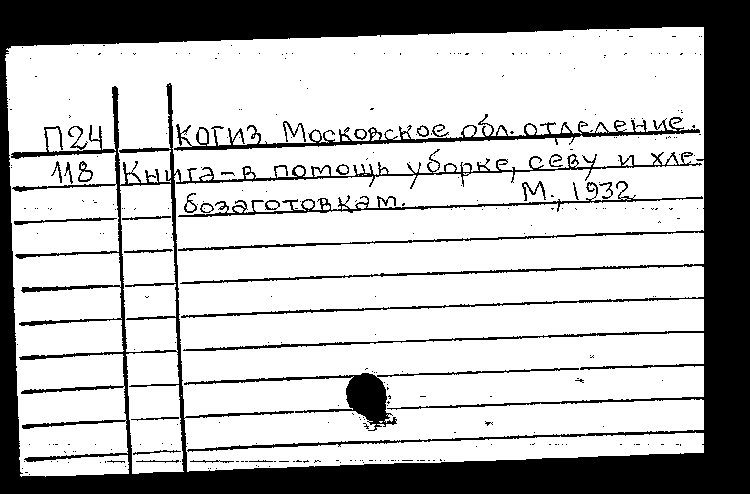 П24 КОГИЗ Московское обл. отделение.
118 Книга-в помощь уборке, севу и хле-
бозаготовкам. М., 1932